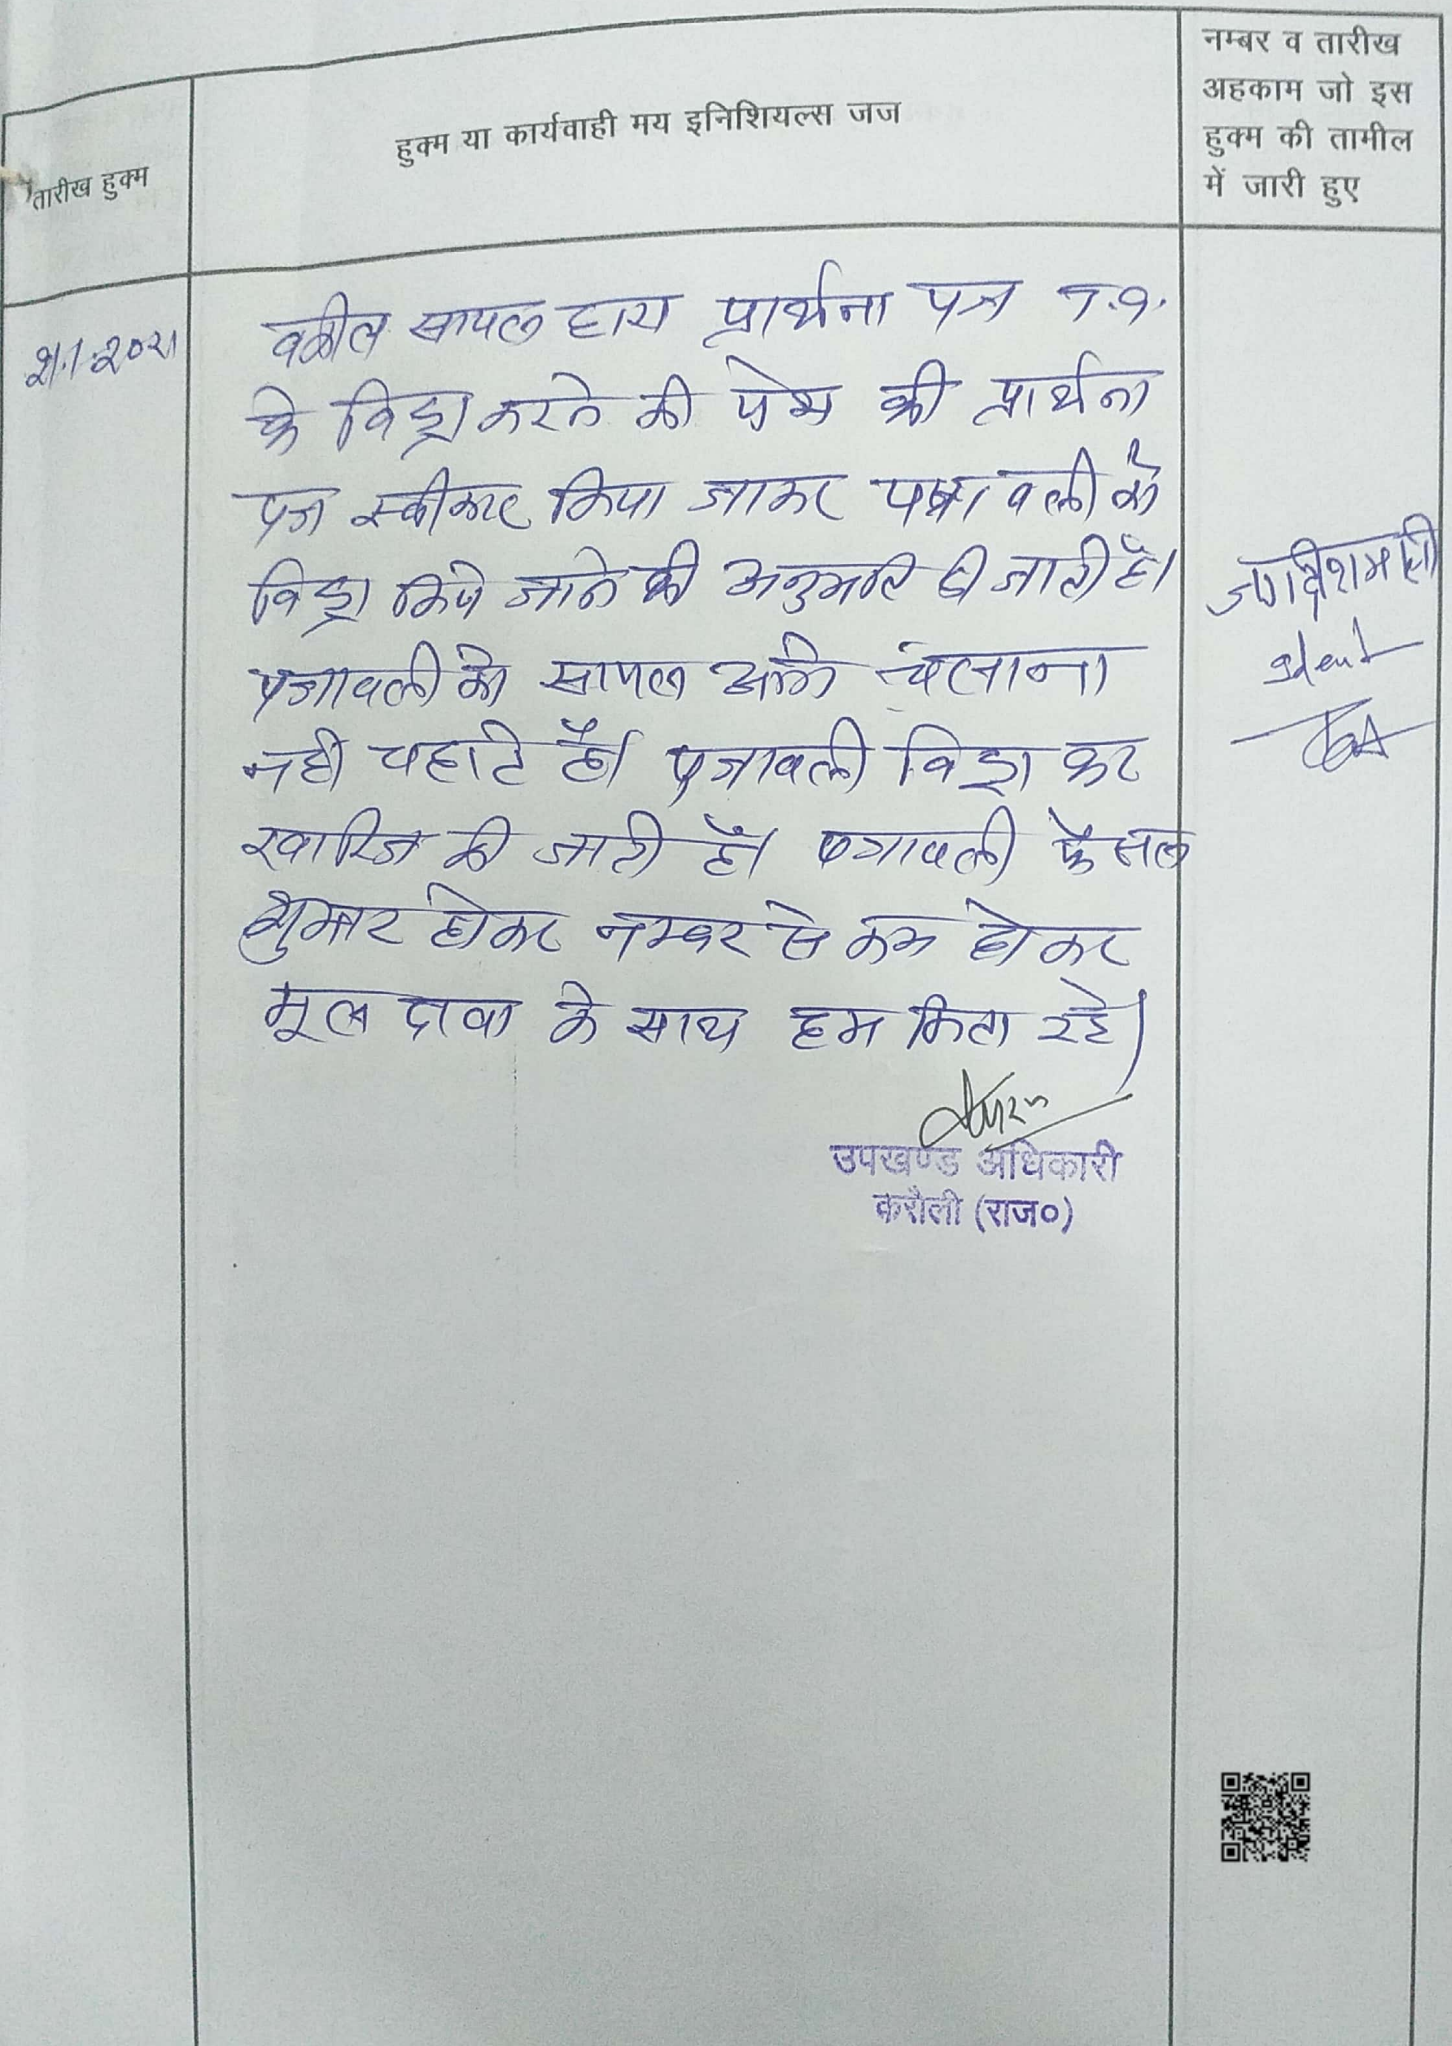 तारीख हुक्म
हुक्म या कार्यवाही मय इनिशियल्स जज
नम्बर व तारीख
अहकाम जो इस
हुक्म की तामील
में जारी हुए
वकील सायल द्वारा प्रार्थना पत्र T.I.
के विड्रा करने की पेश की प्रार्थना
पत्र स्वीकार किया जाकर पत्रावली को
विड्रा किये जाने की अनुमति दी जाती है।
पत्रावली को सायल आगे चलाना
नही चहाते है। पत्रावली विड्रा कर
खारिज की जाती है। पत्रावली फैसल
शुमार होकर नम्बर से कम होकर
मूल दावा के साथ हम किता रहे।
उपखण्ड अधिकारी
करौली (राज०)